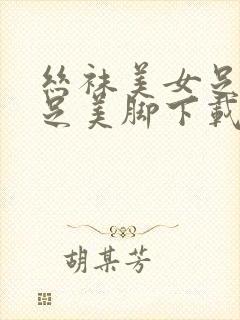 丝袜美女足
足美脚下载
胡某芳